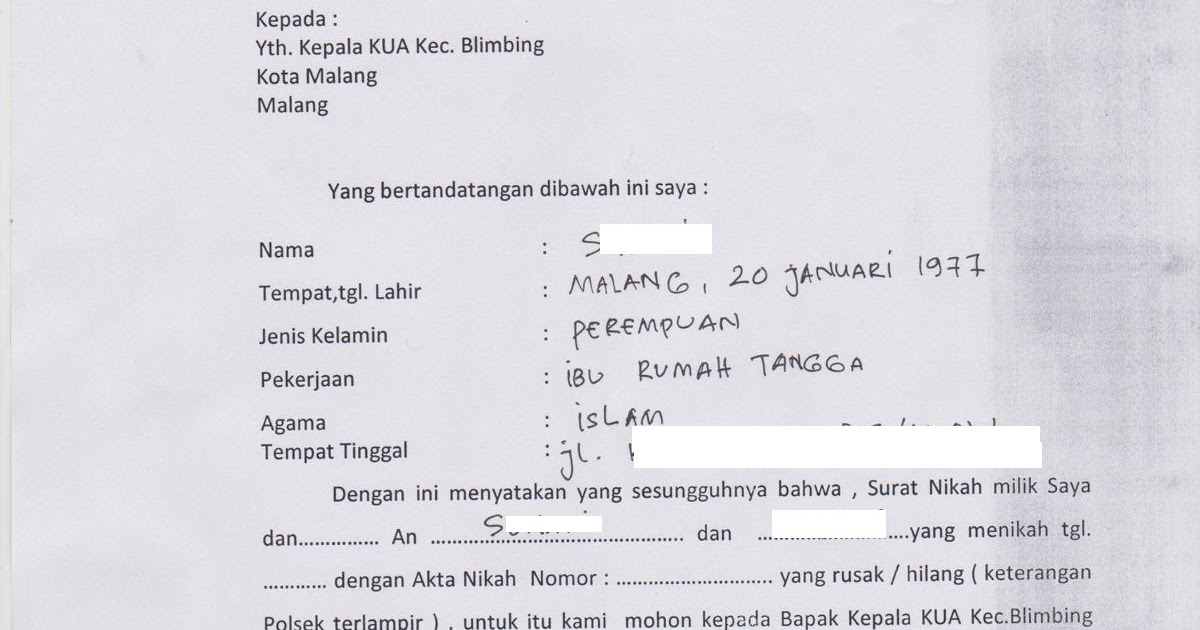 Kepada :
Yth. Kepala KUA Kec. Blimbing
Kota Malang
Malang
Yang bertandatangan dibawah ini saya :
Nama : S
Tempat,tgl. Lahir : MALANG, 20 JANUARI 1977
Jenis Kelamin : PEREMPUAN
Pekerjaan : IBU RUMAH TANGGA
Agama : ISLAM
Tempat Tinggal : jl.
Dengan ini menyatakan yang sesungguhnya bahwa , Surat Nikah milik Saya
dan............... An ............................................ dan ........................yang menikah tgl.
............ dengan Akta Nikah Nomor : ........................... yang rusak / hilang ( keterangan
Polsek terlampir ) , untuk itu kami mohon kepada Bapak Kepala KUA Kec.Blimbing